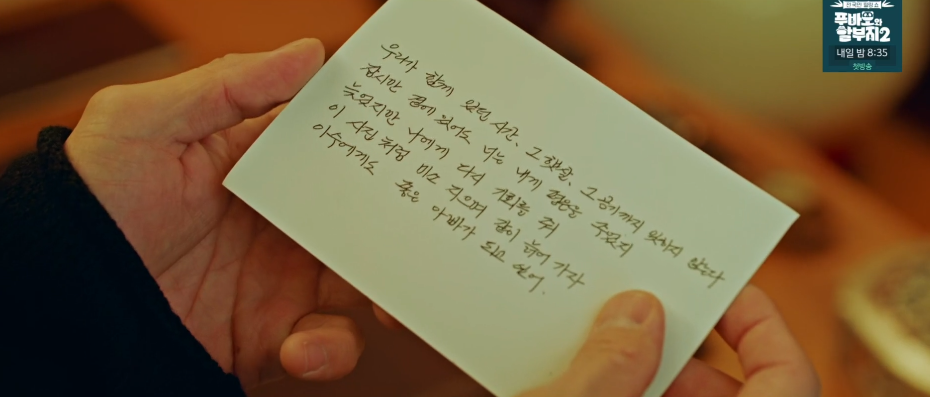 우리가 함께 있던 시간, 그 햇살, 그 공기까지 잊혀지지 않는다
잠시만 곁에 있어도 너는 내게 평온을 주었지
늦었지만 나에게 다시 기회를 줘
이 사진처럼 미소 지으며 같이 늙어 가자
아수에게도 좋은 아빠가 되고 싶어.
푸바오와
할부지2
내일 밤 8:35
첫방송